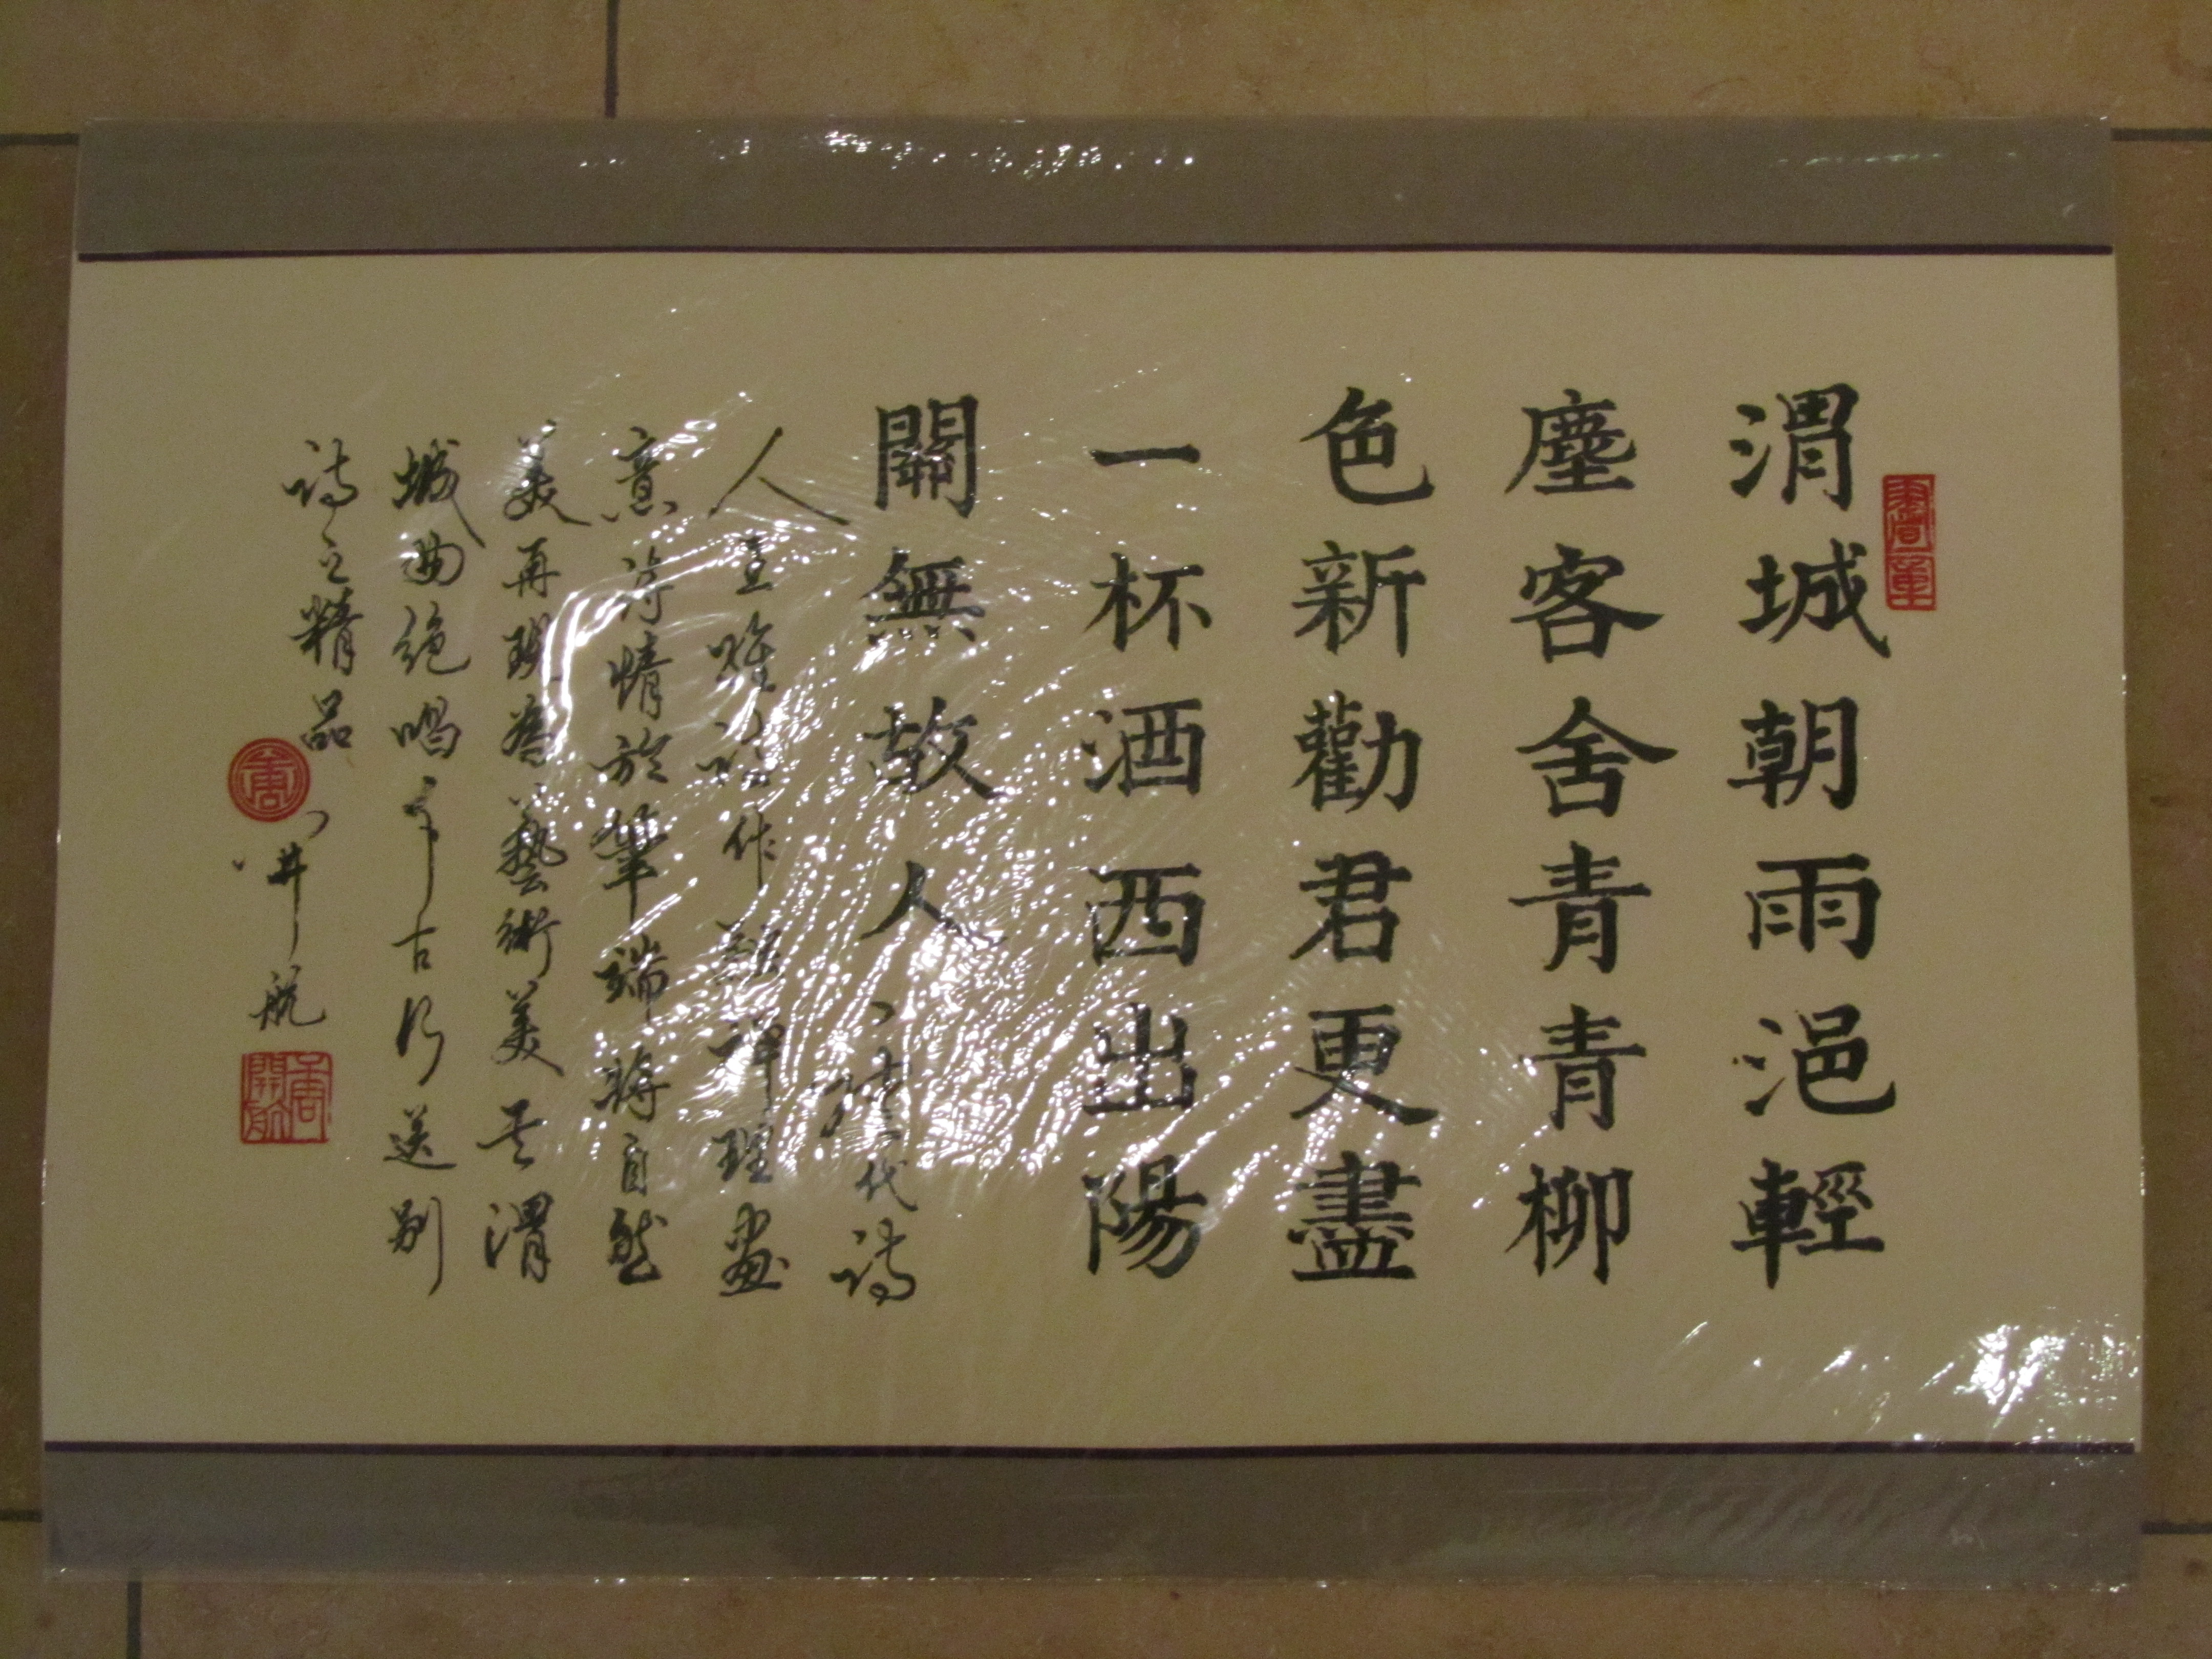 渭城朝雨浥輕
塵客舍青青柳
色新勸君更盡
一杯酒西出陽
關無故人
唐代詩
人王維詩作 禪理畫
意 情於筆端將自然
美再現為藝術美 渭
城曲絕唱千古 送別
詩之精品
開航